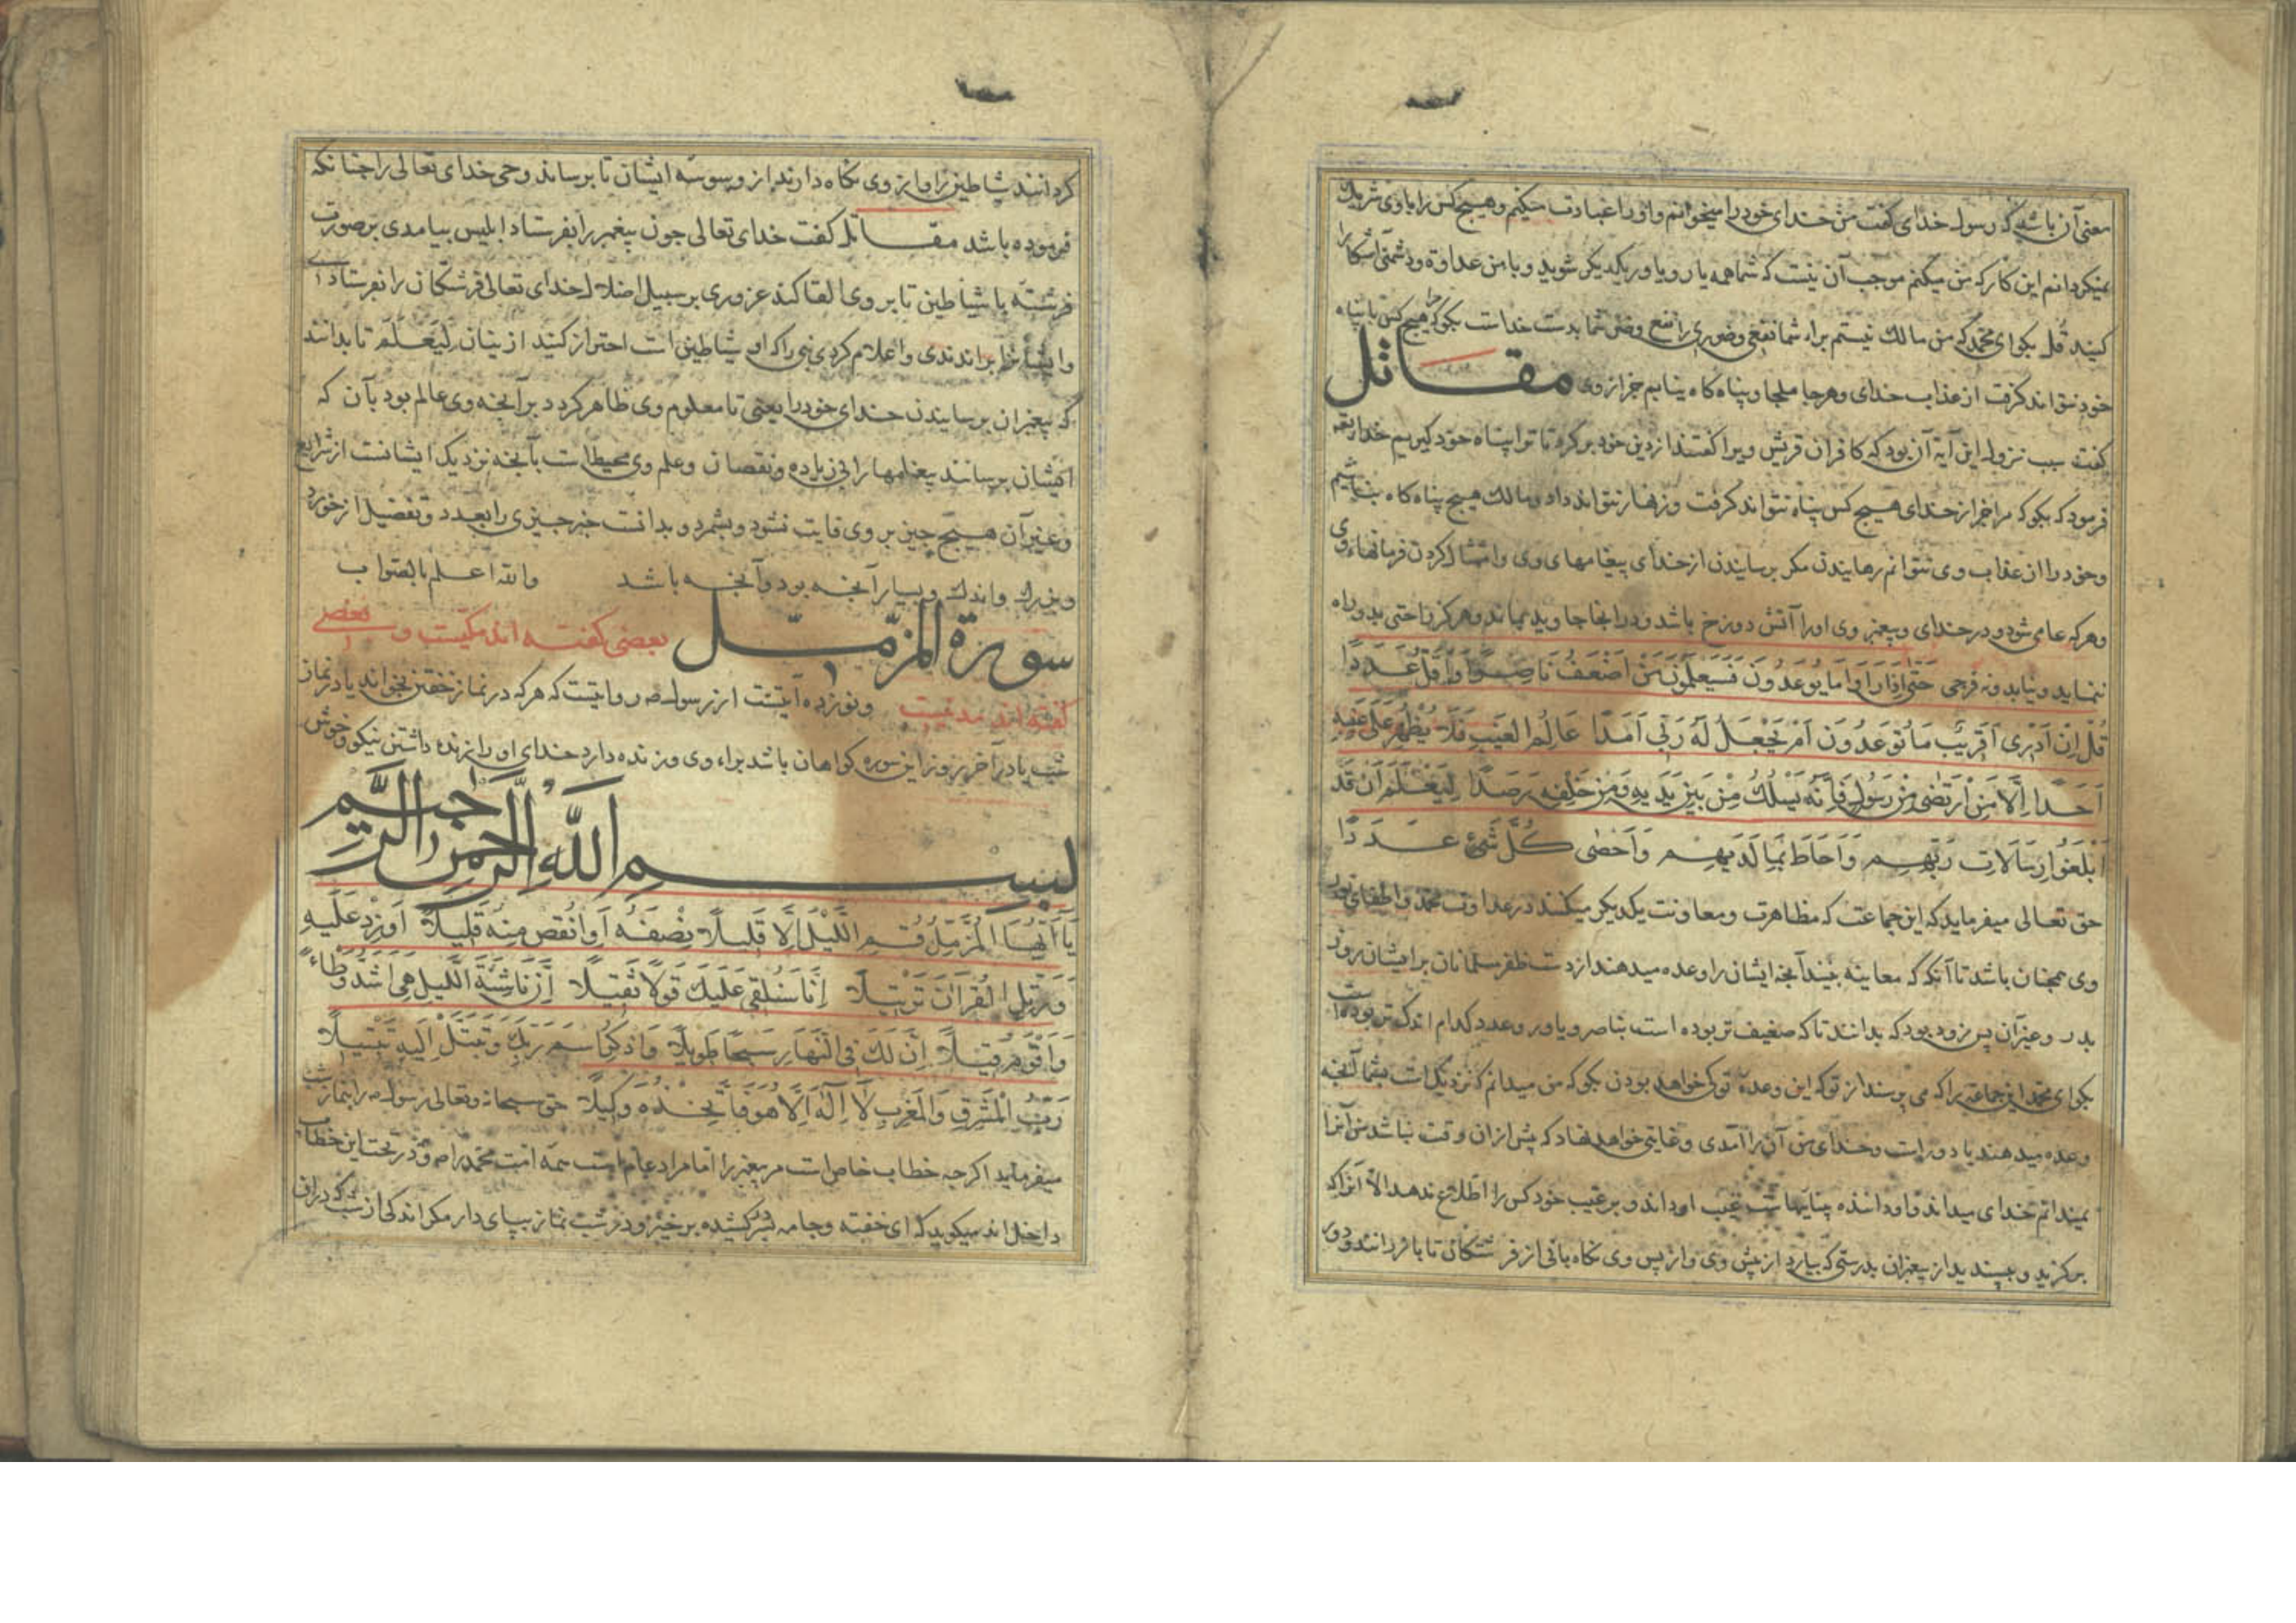 معنی آن باشد که رسول خدای کفت من خدای خود را میخوانم و اورا عبادت میکنم و هیچ کس را با وی شریک
نمیکردانم این کار که من میکنم موجب آن نیست که شما همه یار و یاور یکدیکر شوید و با من عداوة و دشمنی آشکارا
کنید قل بکو ای محمد که من مالک نیستم براء شما نفعی و ضرری را نفع و ضر شما بدست خداست بکو که مرا هیچ کس با پناه
خود نتواند کرفت از عذاب خدای و هرجا ملجا و پناه کاه نیابم جز از وی مقاتل
کفت سبب نزول این آیة آن بود که کافران قریش ویرا کفتند از دین خود برکرد تا ترا پناه خود کیریم خدا یتعه
فرمود که بکو که مرا جز از خدای هیچ کس پناه نتواند کرفت و زنهار نتواند داد و مالک هیچ پناه کاه نباشیم
و خود را از عذاب وی نتوانم رهانیدن مکر برسانیدن از خدای پیغامهای وی و امتثال کردن فرمانهاء وی
و هرکه عاصی شود در خدای و پیغمبر وی اورا آتش دوزخ باشد و در انجا جاوید بماند و هرکز راحتی بدو راه
ننماید و نیابد و نه فرجی حَتّٰی اِذَا رَاَوْا مَا یُوعَدُونَ فَسَیَعْلَمُونَ مَنْ اَضْعَفُ نَاصِرًا وَاَقَلُّ عَدَدًا
قُلْ اِنْ اَدْرِی اَقَرِیبٌ مَا تُوعَدُونَ اَمْ یَجْعَلُ لَهُ رَبِّی اَمَدًا عَالِمُ الْغَیْبِ فَلَا یُظْهِرُ عَلٰی غَیْبِهِ
اَحَدًا اِلَّا مَنِ ارْتَضٰی مِنْ رَسُولٍ فَاِنَّهُ یَسْلُكُ مِنْ بَیْنِ یَدَیْهِ وَمِنْ خَلْفِهِ رَصَدًا لِیَعْلَمَ اَنْ قَدْ
اَبْلَغُوا رِسَالَاتِ رَبِّهِمْ وَاَحَاطَ بِمَا لَدَیْهِمْ وَاَحْصٰی کُلَّ شَیْءٍ عَدَدًا
حق تعالی میفرماید که این جماعت که مظاهرت و معاونت یکدیکر میکنند در عداوت محمد و اطفای نور
وی همچنان باشد تا آنکه که معاینه بینند آنچه ایشان را وعده میدهند از دست ظفر مسلمانان بر ایشان روز
بدر و غیر آن پس زود بود که بدانند تا که ضعیف تر بوده است بناصر و یاور و عدد کدام اندک تر بوده است
بکو ای محمد این جماعة را که می پرسند از تو که این وعده تو کی خواهد بودن بکو که من میدانم که نزدیک است بشما آنچه
وعده میدهند یا دور است و خدای من آن را آمدی و غایتی خواهد نهاد که پیش از ان وقت نباشد من آنرا
نمیدانم خدای میداند و او دانندهٔ پنهانیهاست غیب او داند و بر غیب خود کس را اطلاع ندهد الا آنرا که
برکزید و بپسندید از پیغمبران بدرستی که بیارد از پیش وی و از پس وی نکاه بانی از فرشتکان تا باز رانند و دور
کردانند شیاطین را و از وی نکاه دارند از وسوسه ایشان تا برساند وحی خدای تعالی را چنانکه
فرموده باشد مقاتل کفت خدای تعالی چون پیغمبر را بفرستاد ابلیس بیامدی بر صورت
فرشته با شیاطین تا بر وی القا کند غروری بر سبیل اضلال خدای تعالی فرشتکان را بفرستادی
و ایشانرا براندندی و اعلام کردی نبی را که او شیاطین است احتراز کنید از ینان لِیَعْلَمَ تا بدانند
که پیغمبران برسانیدن خدای خود را یعنی تا معلوم وی ظاهر کردد بر آنچه وی عالم بود بآن که
ایشان برسانند پیغامها را بی زیاده و نقصان و علم وی محیط است بآنچه نزدیک ایشانست از شرایع
و غیر آن هیچ چیز بر وی فایت نشود و بشمرد و بدانست خبر چیزی را بعدد و تفضیل از خورد
و بزرک و اندک و بسیار آنچه بود و آنچه باشد والله اعلم بالصواب
سورة المزمّل بعضی کفته اند مکیست و بعضی
کفته اند مدنیست و نوزده آیتست از رسول صه روایتست که هرکه در نماز خفتن بخواند یا در نماز
شب یا در آخر روز این سوره کواهان باشد براء وی و زنده دارد خدای او را زنده داشتن نیکو و خوش
بسم الله الرحمن الرحیم
یَا اَیُّهَا الْمُزَّمِّلُ قُمِ اللَّیْلَ اِلَّا قَلِیلًا نِصْفَهُ اَوِ انْقُصْ مِنْهُ قَلِیلًا اَوْ زِدْ عَلَیْهِ
وَرَتِّلِ الْقُرْآنَ تَرْتِیلًا اِنَّا سَنُلْقِی عَلَیْكَ قَوْلًا ثَقِیلًا اِنَّ نَاشِئَةَ اللَّیْلِ هِیَ اَشَدُّ وَطْاءً
وَاَقْوَمُ قِیلًا اِنَّ لَكَ فِی النَّهَارِ سَبْحًا طَوِیلًا وَاذْکُرِ اسْمَ رَبِّكَ وَتَبَتَّلْ اِلَیْهِ تَبْتِیلًا
رَبُّ الْمَشْرِقِ وَالْمَغْرِبِ لَا اِلٰهَ اِلَّا هُوَ فَاتَّخِذْهُ وَکِیلًا حق سبحانه و تعالی رسول صه را بنماز شب
میفرماید اکرچه خطاب خاص است مر پیغمبر را اما مراد عام است همه امت محمد را صه و در تحت این خطاب
داخل اند میکوید که ای خفته و جامه بسر کشیده برخیز و در شب نماز بپای دار مکر اندکی از شب که در ان